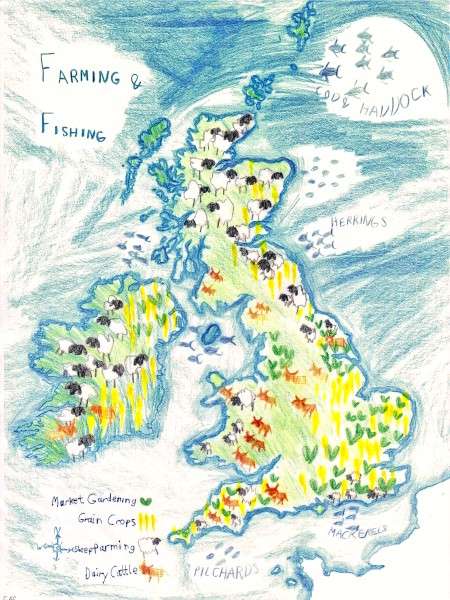 FARMING &
FISHING
COD & HADDOCK
HERRINGS
Market Gardening
Grain Crops
Sheep Farming
Dairy Cattle
MACKERELS
PILCHARDS